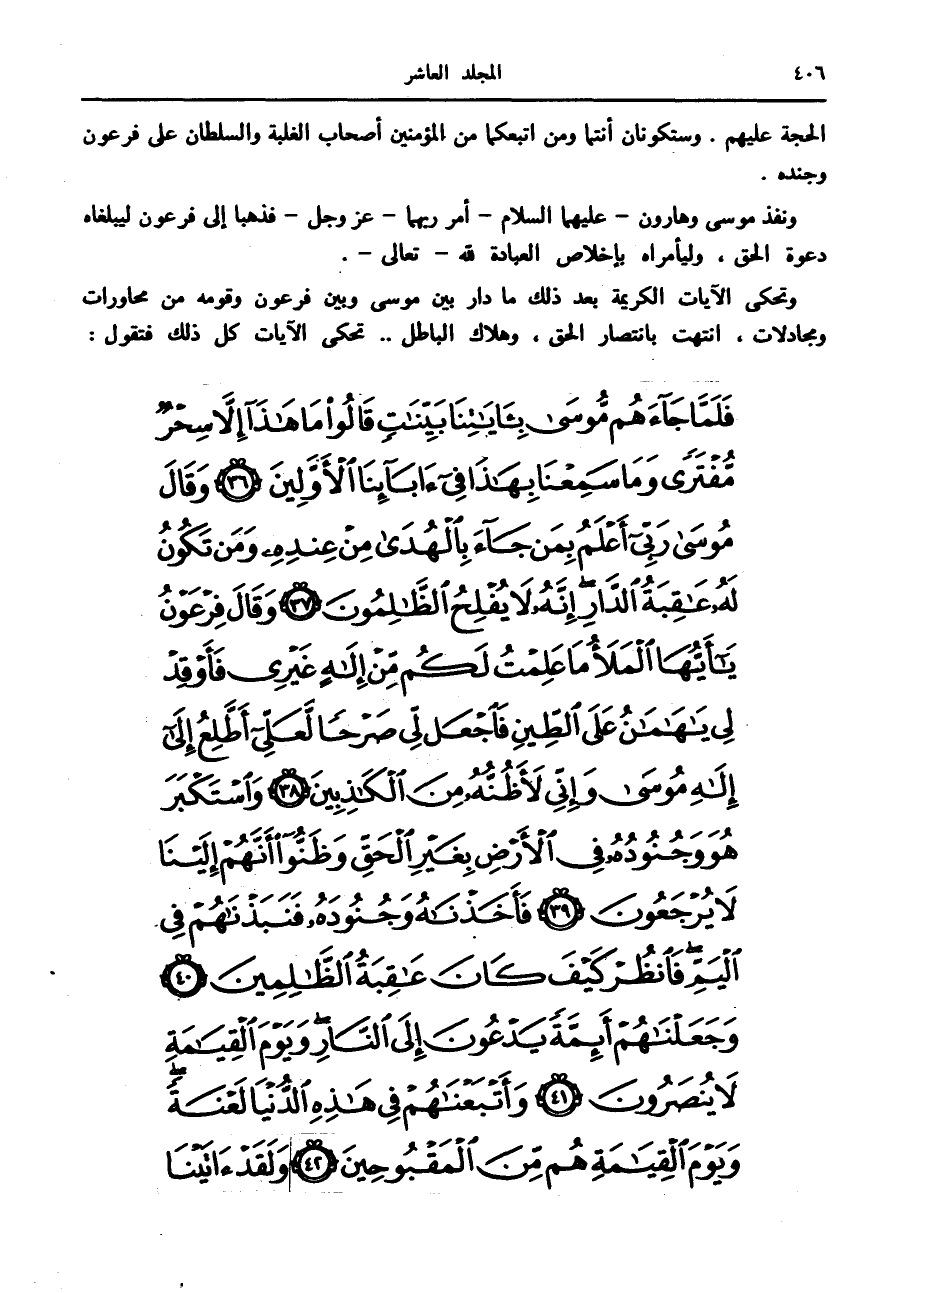 ٤٠٦ المجلد العاشر
الحجة عليهم . وستكونان أنتما ومن اتبعكما من المؤمنين أصحاب الغلبة والسلطان على فرعون
وجنده .
ونفذ موسى وهارون – عليهما السلام – أمر ربهما – عز وجل – فذهبا إلى فرعون ليبلغاه
دعوة الحق ، وليأمراه بإخلاص العبادة لله – تعالى – .
وتحكى الآيات الكريمة بعد ذلك ما دار بين موسى وبين فرعون وقومه من محاورات
ومجادلات ، انتهت بانتصار الحق ، وهلاك الباطل .. تحكى الآيات كل ذلك فتقول :
فَلَمَّا جَآءَهُم مُّوسَىٰ بِـَٔايَٰتِنَا بَيِّنَٰتٍ قَالُوا۟ مَا هَٰذَآ إِلَّا سِحْرٌ
مُّفْتَرًى وَمَا سَمِعْنَا بِهَٰذَا فِىٓ ءَابَآئِنَا ٱلْأَوَّلِينَ ٣٦ وَقَالَ
مُوسَىٰ رَبِّىٓ أَعْلَمُ بِمَن جَآءَ بِٱلْهُدَىٰ مِنْ عِندِهِۦ وَمَن تَكُونُ
لَهُۥ عَٰقِبَةُ ٱلدَّارِ ۖ إِنَّهُۥ لَا يُفْلِحُ ٱلظَّٰلِمُونَ ٣٧ وَقَالَ فِرْعَوْنُ
يَٰٓأَيُّهَا ٱلْمَلَأُ مَا عَلِمْتُ لَكُم مِّنْ إِلَٰهٍ غَيْرِى فَأَوْقِدْ
لِى يَٰهَٰمَٰنُ عَلَى ٱلطِّينِ فَٱجْعَل لِّى صَرْحًا لَّعَلِّىٓ أَطَّلِعُ إِلَىٰٓ
إِلَٰهِ مُوسَىٰ وَإِنِّى لَأَظُنُّهُۥ مِنَ ٱلْكَٰذِبِينَ ٣٨ وَٱسْتَكْبَرَ
هُوَ وَجُنُودُهُۥ فِى ٱلْأَرْضِ بِغَيْرِ ٱلْحَقِّ وَظَنُّوٓا۟ أَنَّهُمْ إِلَيْنَا
لَا يُرْجَعُونَ ٣٩ فَأَخَذْنَٰهُ وَجُنُودَهُۥ فَنَبَذْنَٰهُمْ فِى
ٱلْيَمِّ ۖ فَٱنظُرْ كَيْفَ كَانَ عَٰقِبَةُ ٱلظَّٰلِمِينَ ٤٠
وَجَعَلْنَٰهُمْ أَئِمَّةً يَدْعُونَ إِلَى ٱلنَّارِ ۖ وَيَوْمَ ٱلْقِيَٰمَةِ
لَا يُنصَرُونَ ٤١ وَأَتْبَعْنَٰهُمْ فِى هَٰذِهِ ٱلدُّنْيَا لَعْنَةً ۖ
وَيَوْمَ ٱلْقِيَٰمَةِ هُم مِّنَ ٱلْمَقْبُوحِينَ ٤٢ وَلَقَدْ ءَاتَيْنَا